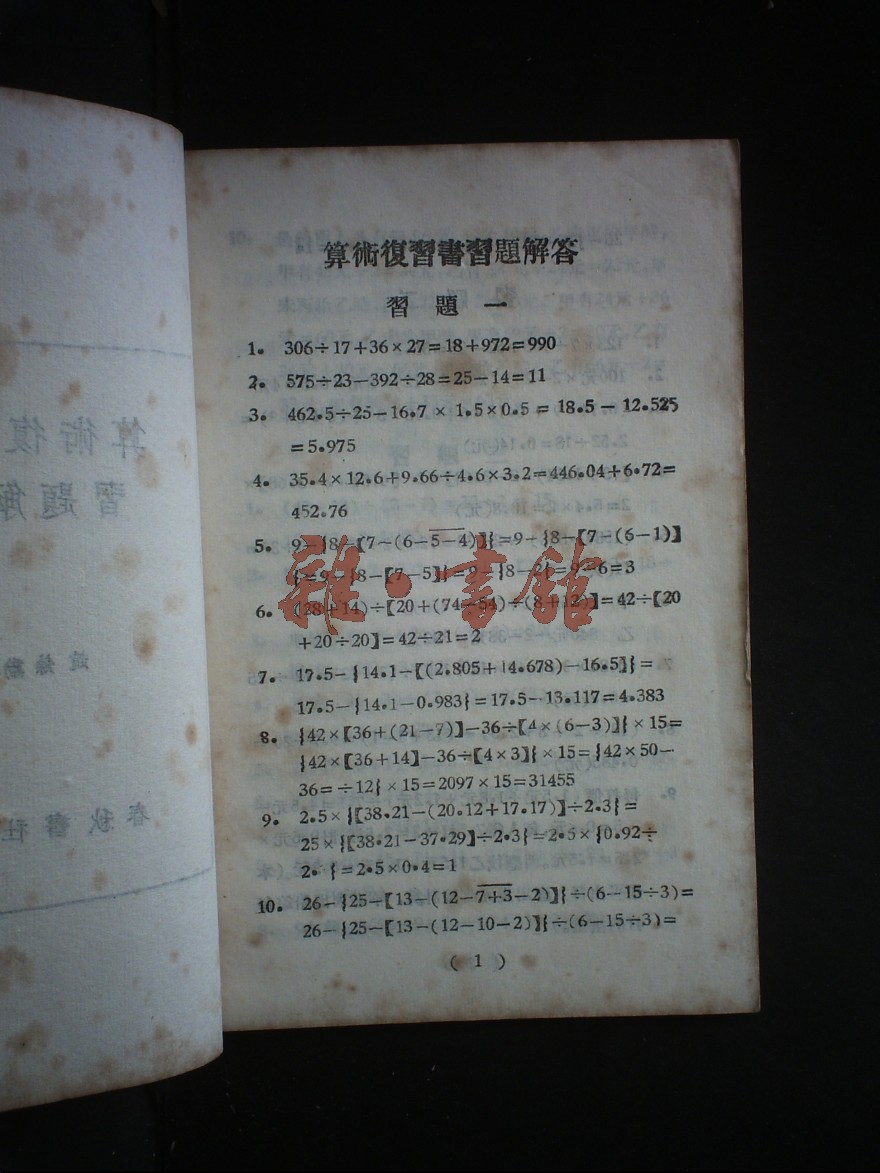 算術復習書習題解答
習題一
1. 306÷17+36×27=18+972=990
2. 575÷23-392÷28=25-14=11
3. 462.5÷25-16.7×1.5×0.5=18.5-12.525
=5.975
4. 35.4×12.6+9.66÷4.6×3.2=446.04+6.72=
452.76
5. 9-{8-〔7-(6-5-4)〕}=9-{8-〔7-(6-1)〕
}=9-{8-〔7-5〕}=9-{8-2}=9-6=3
6. (28+14)÷〔20+(74-54)÷(8+12)〕=42÷〔20
+20÷20〕=42÷21=2
7. 17.5-{14.1-〔(2.805+14.678)-16.5〕}=
17.5-{14.1-0.983}=17.5-13.117=4.383
8. {42×〔36+(21-7)〕-36÷〔4×(6-3)〕}×15=
{42×〔36+14〕-36÷〔4×3〕}×15={42×50-
36=÷12}×15=2097×15=31455
9. 2.5×{〔38.21-(20.12+17.17)〕÷2.3}=
25×{〔38.21-37.29〕÷2.3}=2.5×{0.92÷
2. }=2.5×0.4=1
10. 26-{25-〔13-(12-7+3-2)〕}÷(6-15÷3)=
26-{25-〔13-(12-10-2)〕}÷(6-15÷3)=
(1)
算術復
習題解
春秋書社
雜·書館